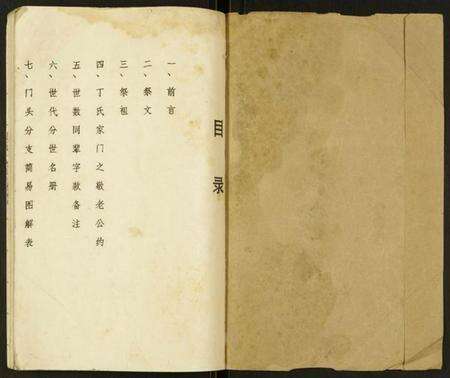 目录
一、前言
二、祭文
三、祭祖
四、丁氏家门之敬老公约
五、世数同辈字款备注
六、世代分世名册
七、门头分支简易图解表